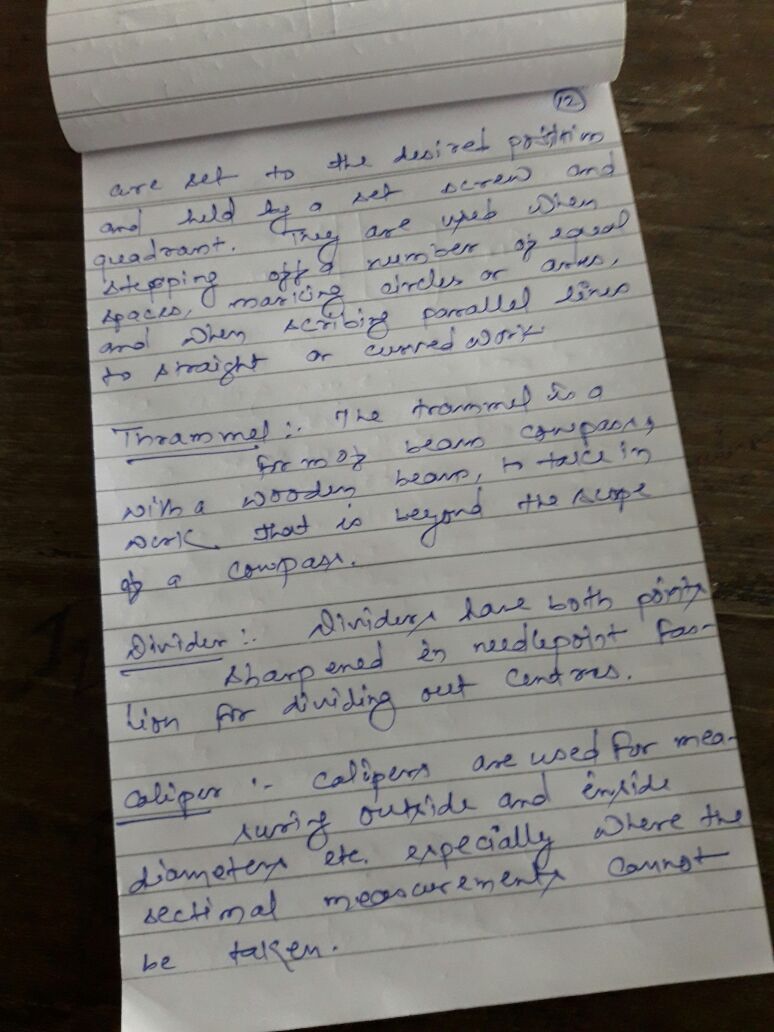 12
are set to the desired position
and held by a set screw and
quadrant. They are used when
stepping off a number of equal
spaces, marking circles or arces,
and when scribing parallel lines
to straight or curved work
Thrammel :- The trammel is a
form of beam compass,
with a wooden beam, to take in
work that is beyond the scope
of a compass.
Divider :- Dividers have both points
sharpened in needlepoint fas-
lion for dividing out centres.
Caliper :- Calipers are used for mea-
suring outside and inside
diameters etc. especially where the
sectional measurements cannot
be taken.